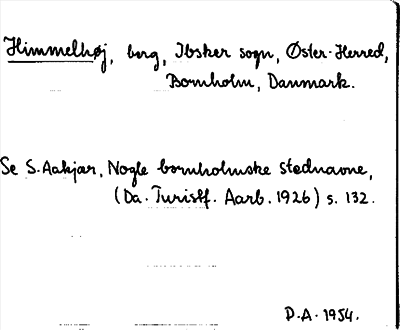 Himmelhøj, borg, Ibsker sogn, Øster-Herred,
Bornholm, Danmark.
Se S. Aakjær, Nogle bornholmske stednavne,
(Da. Turistf. Aarb. 1926) s. 132.
P.A. 1954.